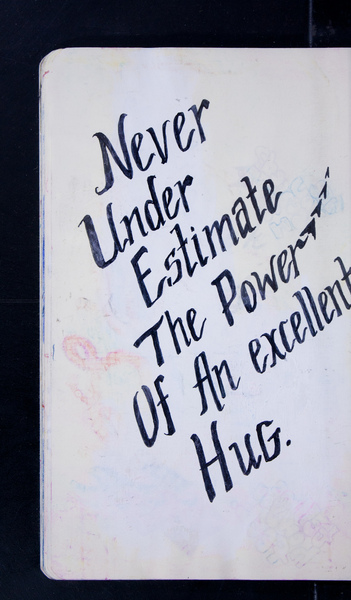 Never
Under
Estimate
The Power
Of An excellent
Hug.